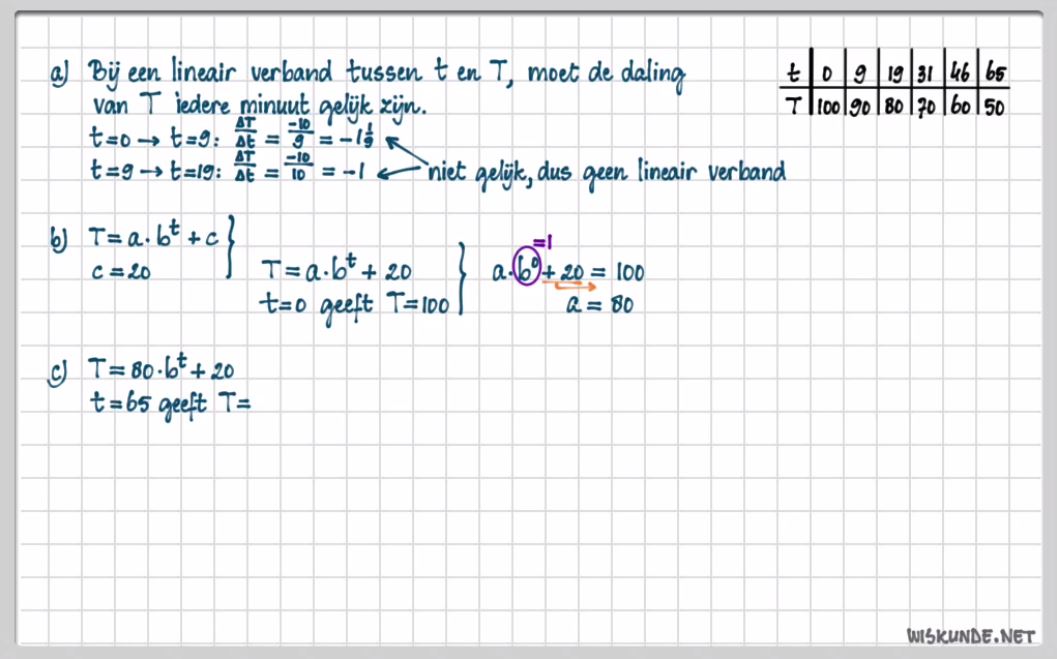 a) Bij een lineair verband tussen t en T, moet de daling
van T iedere minuut gelijk zijn.
t=0 → t=9: ΔT/Δt = -10/9 = -1 1/9
t=9 → t=19: ΔT/Δt = -10/10 = -1
niet gelijk, dus geen lineair verband
t | 0 | 9 | 19 | 31 | 46 | 65
T | 100 | 90 | 80 | 70 | 60 | 50
b) T = a · b^t + c
c = 20
T = a · b^t + 20
t=0 geeft T=100
=1
a · b^0 + 20 = 100
a = 80
c) T = 80 · b^t + 20
t = 65 geeft T =
WISKUNDE.NET